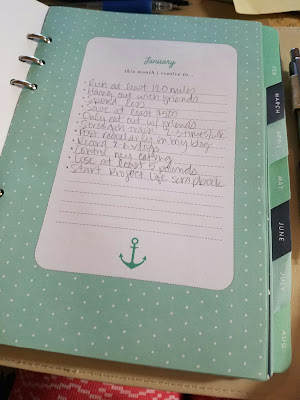 January
this month i resolve to...
• Run at least 120 miles
• Hang out with friends
• Spend less
• Save at least $500
• Only eat out w/ friends
• Strength train 2-3 times/wk
• Post regularly on my blog
• Record 8 vlogs
• Control my eating
• Lose at least 5 pounds
• Start Project Life scrapbook
FEB
MARCH
APRIL
MAY
JUNE
JULY
AUG